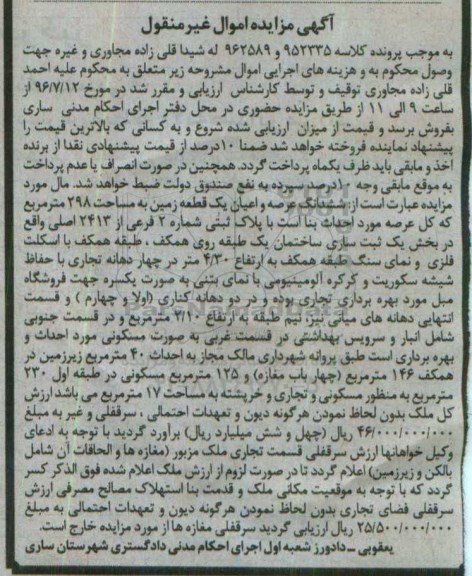 آگهی مزایده اموال غیر منقول
به موجب پرونده کلاسه ۹۵۲۳۳۵ و ۹۶۲۵۸۹ له شیدا قلی زاده مجاوری و غیره جهت
وصول محکوم به و هزینه های اجرایی اموال مشروحه زیر متعلق به محکوم علیه احمد
قلی زاده مجاوری توقیف و توسط کارشناس ارزیابی و مقرر شد در مورخ ۹۶/۷/۱۲ از
ساعت ۹ الی ۱۱ از طریق مزایده حضوری در محل دفتر اجرای احکام مدنی ساری
بفروش برسد و قیمت از میزان ارزیابی شده شروع و به کسانی که بالاترین قیمت را
پیشنهاد نماینده فروخته خواهد شد ضمنا ۱۰درصد از قیمت پیشنهادی نقدا از برنده
اخذ و مابقی باید ظرف یکماه پرداخت گردد. همچنین در صورت انصراف یا عدم پرداخت
به موقع مابقی وجه ۱۰درصد سپرده به نفع صندوق دولت ضبط خواهد شد. مال مورد
مزایده عبارت است از: ششدانگ عرصه و اعیان یک قطعه زمین به مساحت ۲۹۸ مترمربع
که کل عرصه مورد احداث بنا است با پلاک ثبتی شماره ۲ فرعی از ۲۴۱۳ اصلی واقع
در بخش یک ثبت ساری ساختمان یک طبقه روی همکف ، طبقه همکف با اسکلت
فلزی و نمای سنگ طبقه همکف به ارتفاع ۴/۳۰ متر در چهار دهانه تجاری با حفاظ
شیشه سکوریت و کرکره آلومینیومی با نمای بتنی به صورت یکسره جهت فروشگاه
مبل مورد بهره برداری تجاری بوده و در دو دهانه کناری (اولا و چهارم ) و قسمت
انتهایی دهانه های میانی نیز نیم طبقه به ارتفاع ۲/۱۰ مترمربع و در قسمت جنوبی
شامل انبار و سرویس بهداشتی در قسمت غربی به صورت مسکونی مورد احداث و
بهره برداری است طبق پروانه شهرداری مالک مجاز به احداث ۴۰ مترمربع زیرزمین در
همکف ۱۴۶ مترمربع (چهار باب مغازه) و ۱۲۵ مترمربع مسکونی در طبقه اول ۲۳۰
مترمربع به منظور مسکونی و تجاری و خرپشته به مساحت ۱۷ مترمربع می باشد ارزش
کل ملک بدون لحاظ نمودن هرگونه دیون و تعهدات احتمالی ، سرقفلی و غیر به مبلغ
۴۶/۰۰۰/۰۰۰/۰۰۰ ریال (چهل و شش میلیارد ریال) برآورد گردید با توجه به ادعای
وکیل خواهانها ارزش سرقفلی قسمت تجاری ملک مزبور (مغازه ها و الحاقات آن شامل
بالکن و زیرزمین) اعلام گردد تا در صورت لزوم از ارزش ملک اعلام شده فوق الذکر کسر
گردد که با توجه به موقعیت مکانی ملک و قدمت بنا استهلاک مصالح مصرفی ارزش
سرقفلی فضای تجاری بدون لحاظ نمودن هرگونه دیون و تعهدات احتمالی به مبلغ
۲۵/۵۰۰/۰۰۰/۰۰۰ ریال ارزیابی گردید سرقفلی مغازه ها از مورد مزایده خارج است.
یعقوبی – دادورز شعبه اول اجرای احکام مدنی دادگستری شهرستان ساری